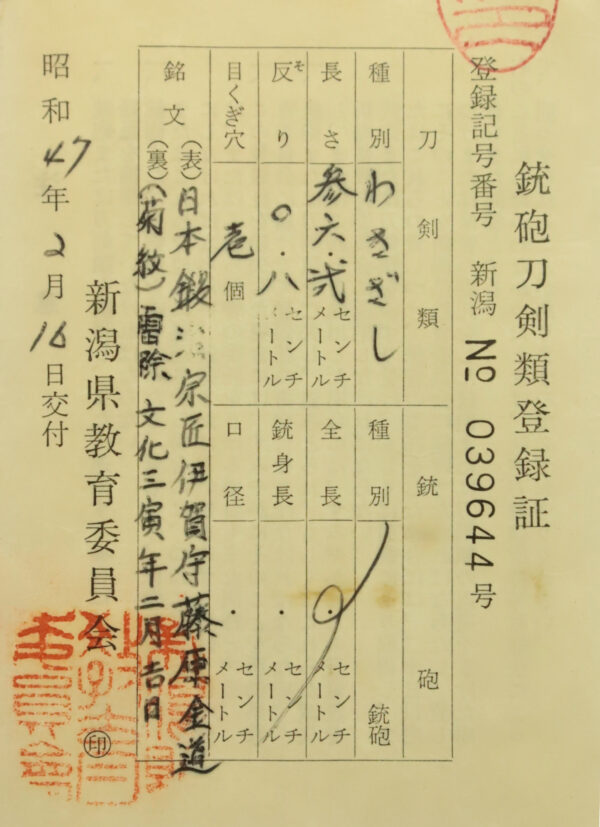 銃砲刀剣類登録証
登録記号番号 新潟 No 039644 号
刀剣類
種別 わきざし
長さ 参六.弐 センチメートル
反り そ 〇.八 センチメートル
目くぎ穴 壱個
銘文
(表) 日本鍛冶宗匠伊賀守藤原金道
(裏) (菊紋) 雷除 文化三寅年二月吉日
銃砲
種別 銃砲
全長 . センチメートル
銃身長 . センチメートル
口径 . センチメートル
昭和47年2月16日交付
新潟県教育委員会 印